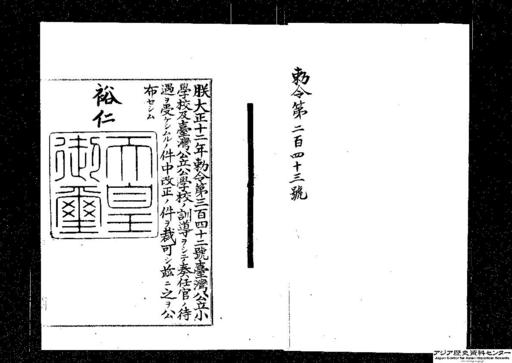 勅令第二百四十三號
朕大正十二年勅令第三百四十二號臺灣公立小
學校及臺灣公立公學校ノ訓導ヲシテ奏任官ノ待
遇ヲ受ケシムルノ件中改正ノ件ヲ裁可シ茲ニ之ヲ公
布セシム
裕仁
天皇
御璽
アジア歴史資料センター
Japan Center for Asian Historical Records